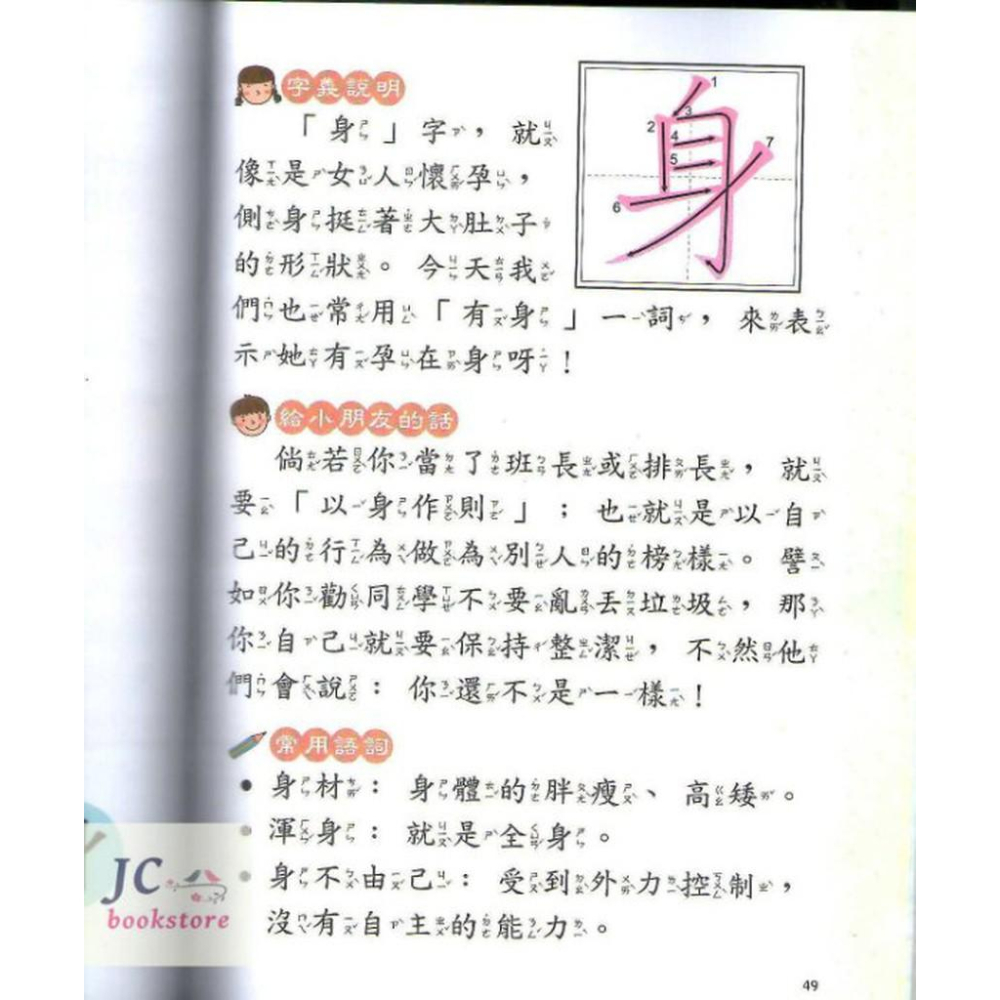 字義說明
「身」字，就
像是女人懷孕，
側身挺著大肚子
的形狀。今天我
們也常用「有身」一詞，來表
示她有孕在身呀！
1
2
3
4
5
6
7
給小朋友的話
倘若你當了班長或排長，就
要「以身作則」；也就是以自
己的行為做為別人的榜樣。譬
如你勸同學不要亂丟垃圾，那
你自己就要保持整潔，不然他
們會說：你還不是一樣！
常用語詞
• 身材：身體的胖瘦、高矮。
• 渾身：就是全身。
• 身不由己：受到外力控制，
沒有自主的能力。
JC
bookstore
49